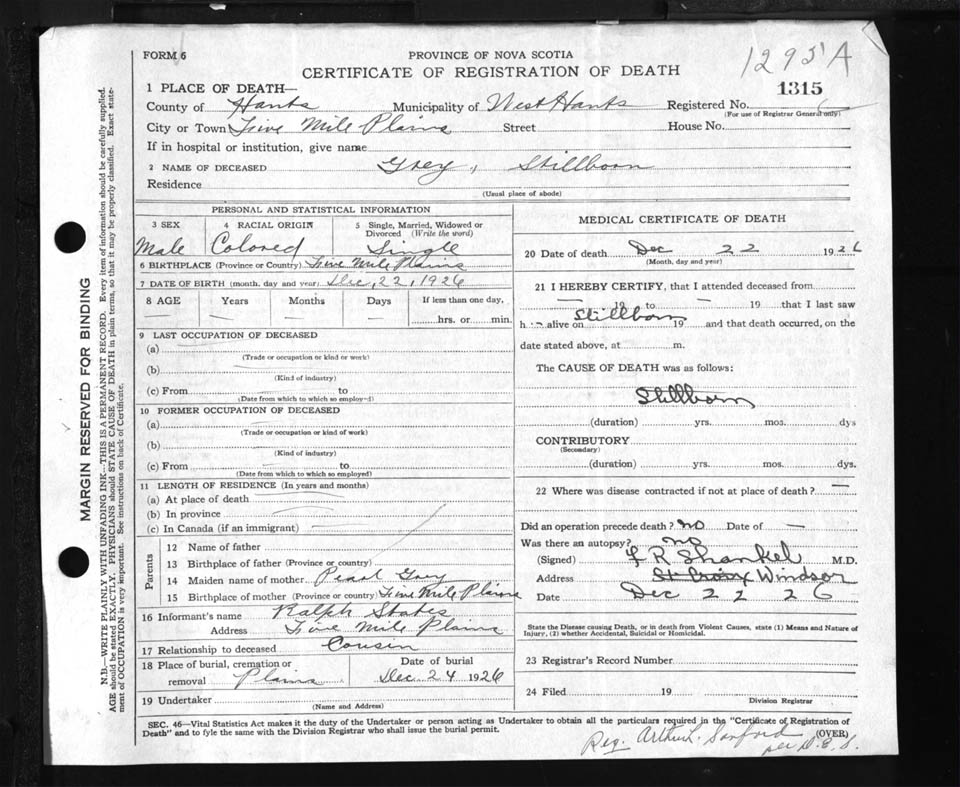 1295 A
FORM 6
PROVINCE OF NOVA SCOTIA
CERTIFICATE OF REGISTRATION OF DEATH
1315
1 PLACE OF DEATH—
County of Hants Municipality of West Hants Registered No.
(For use of Registrar General only)
City or Town Five Mile Plains Street House No.
If in hospital or institution, give name
2 NAME OF DECEASED Grey, Stillborn
Residence
(Usual place of abode)
PERSONAL AND STATISTICAL INFORMATION
3 SEX 4 RACIAL ORIGIN 5 Single, Married, Widowed or Divorced (Write the word)
Male Colored Single
6 BIRTHPLACE (Province or Country) Five Mile Plains
7 DATE OF BIRTH (month, day and year) Dec, 22, 1926
8 AGE Years Months Days If less than one day,
— — — — hrs. or min.
9 LAST OCCUPATION OF DECEASED
(a)
(Trade or occupation or kind or work)
(b)
(Kind of industry)
(c) From to
(Date from which to which so employ-d)
10 FORMER OCCUPATION OF DECEASED
(a)
(Trade or occupation or kind of work)
(b)
(Kind of industry)
(c) From to
(Date from which to which so employed)
11 LENGTH OF RESIDENCE (In years and months)
(a) At place of death
(b) In province
(c) In Canada (if an immigrant)
Parents
12 Name of father
13 Birthplace of father (Province or country)
14 Maiden name of mother Pearl Grey
15 Birthplace of mother (Province or country) Five Mile Plains
16 Informant's name Ralph States
Address Five Mile Plains
17 Relationship to deceased Cousin
18 Place of burial, cremation or removal Plains
Date of burial Dec. 24 1926
19 Undertaker
(Name and Address)
MEDICAL CERTIFICATE OF DEATH
20 Date of death Dec 22 1926
(Month, day and year)
21 I HEREBY CERTIFY, that I attended deceased from
— 19 to — 19 that I last saw
h alive on Stillborn 19 and that death occurred, on the
date stated above, at m.
The CAUSE OF DEATH was as follows:
Stillborn
(duration) yrs. mos. dys
CONTRIBUTORY
(Secondary)
(duration) yrs. mos. dys.
22 Where was disease contracted if not at place of death? —
Did an operation precede death? no Date of —
Was there an autopsy? no
(Signed) F R Shankel M.D.
Address St Croix Windsor
Date Dec 22 26
State the Disease causing Death, or in death from Violent Causes, state (1) Means and Nature of
Injury, (2) whether Accidental, Suicidal or Homicidal.
23 Registrar's Record Number
24 Filed 19
Division Registrar
SEC. 46—Vital Statistics Act makes it the duty of the Undertaker or person acting as Undertaker to obtain all the particulars required in the "Certificate of Registration of
Death" and to fyle the same with the Division Registrar who shall issue the burial permit.
(OVER)
Reg. Arthur L. Sanford
per D.E.S.
MARGIN RESERVED FOR BINDING
N.B.—WRITE PLAINLY WITH UNFADING INK—THIS IS A PERMANENT RECORD. Every item of information should be carefully supplied.
AGE should be stated EXACTLY. PHYSICIANS should STATE CAUSE OF DEATH in plain terms, so that it may be properly classified. Exact state-
ment of OCCUPATION is very important. See instructions on back of Certificate.